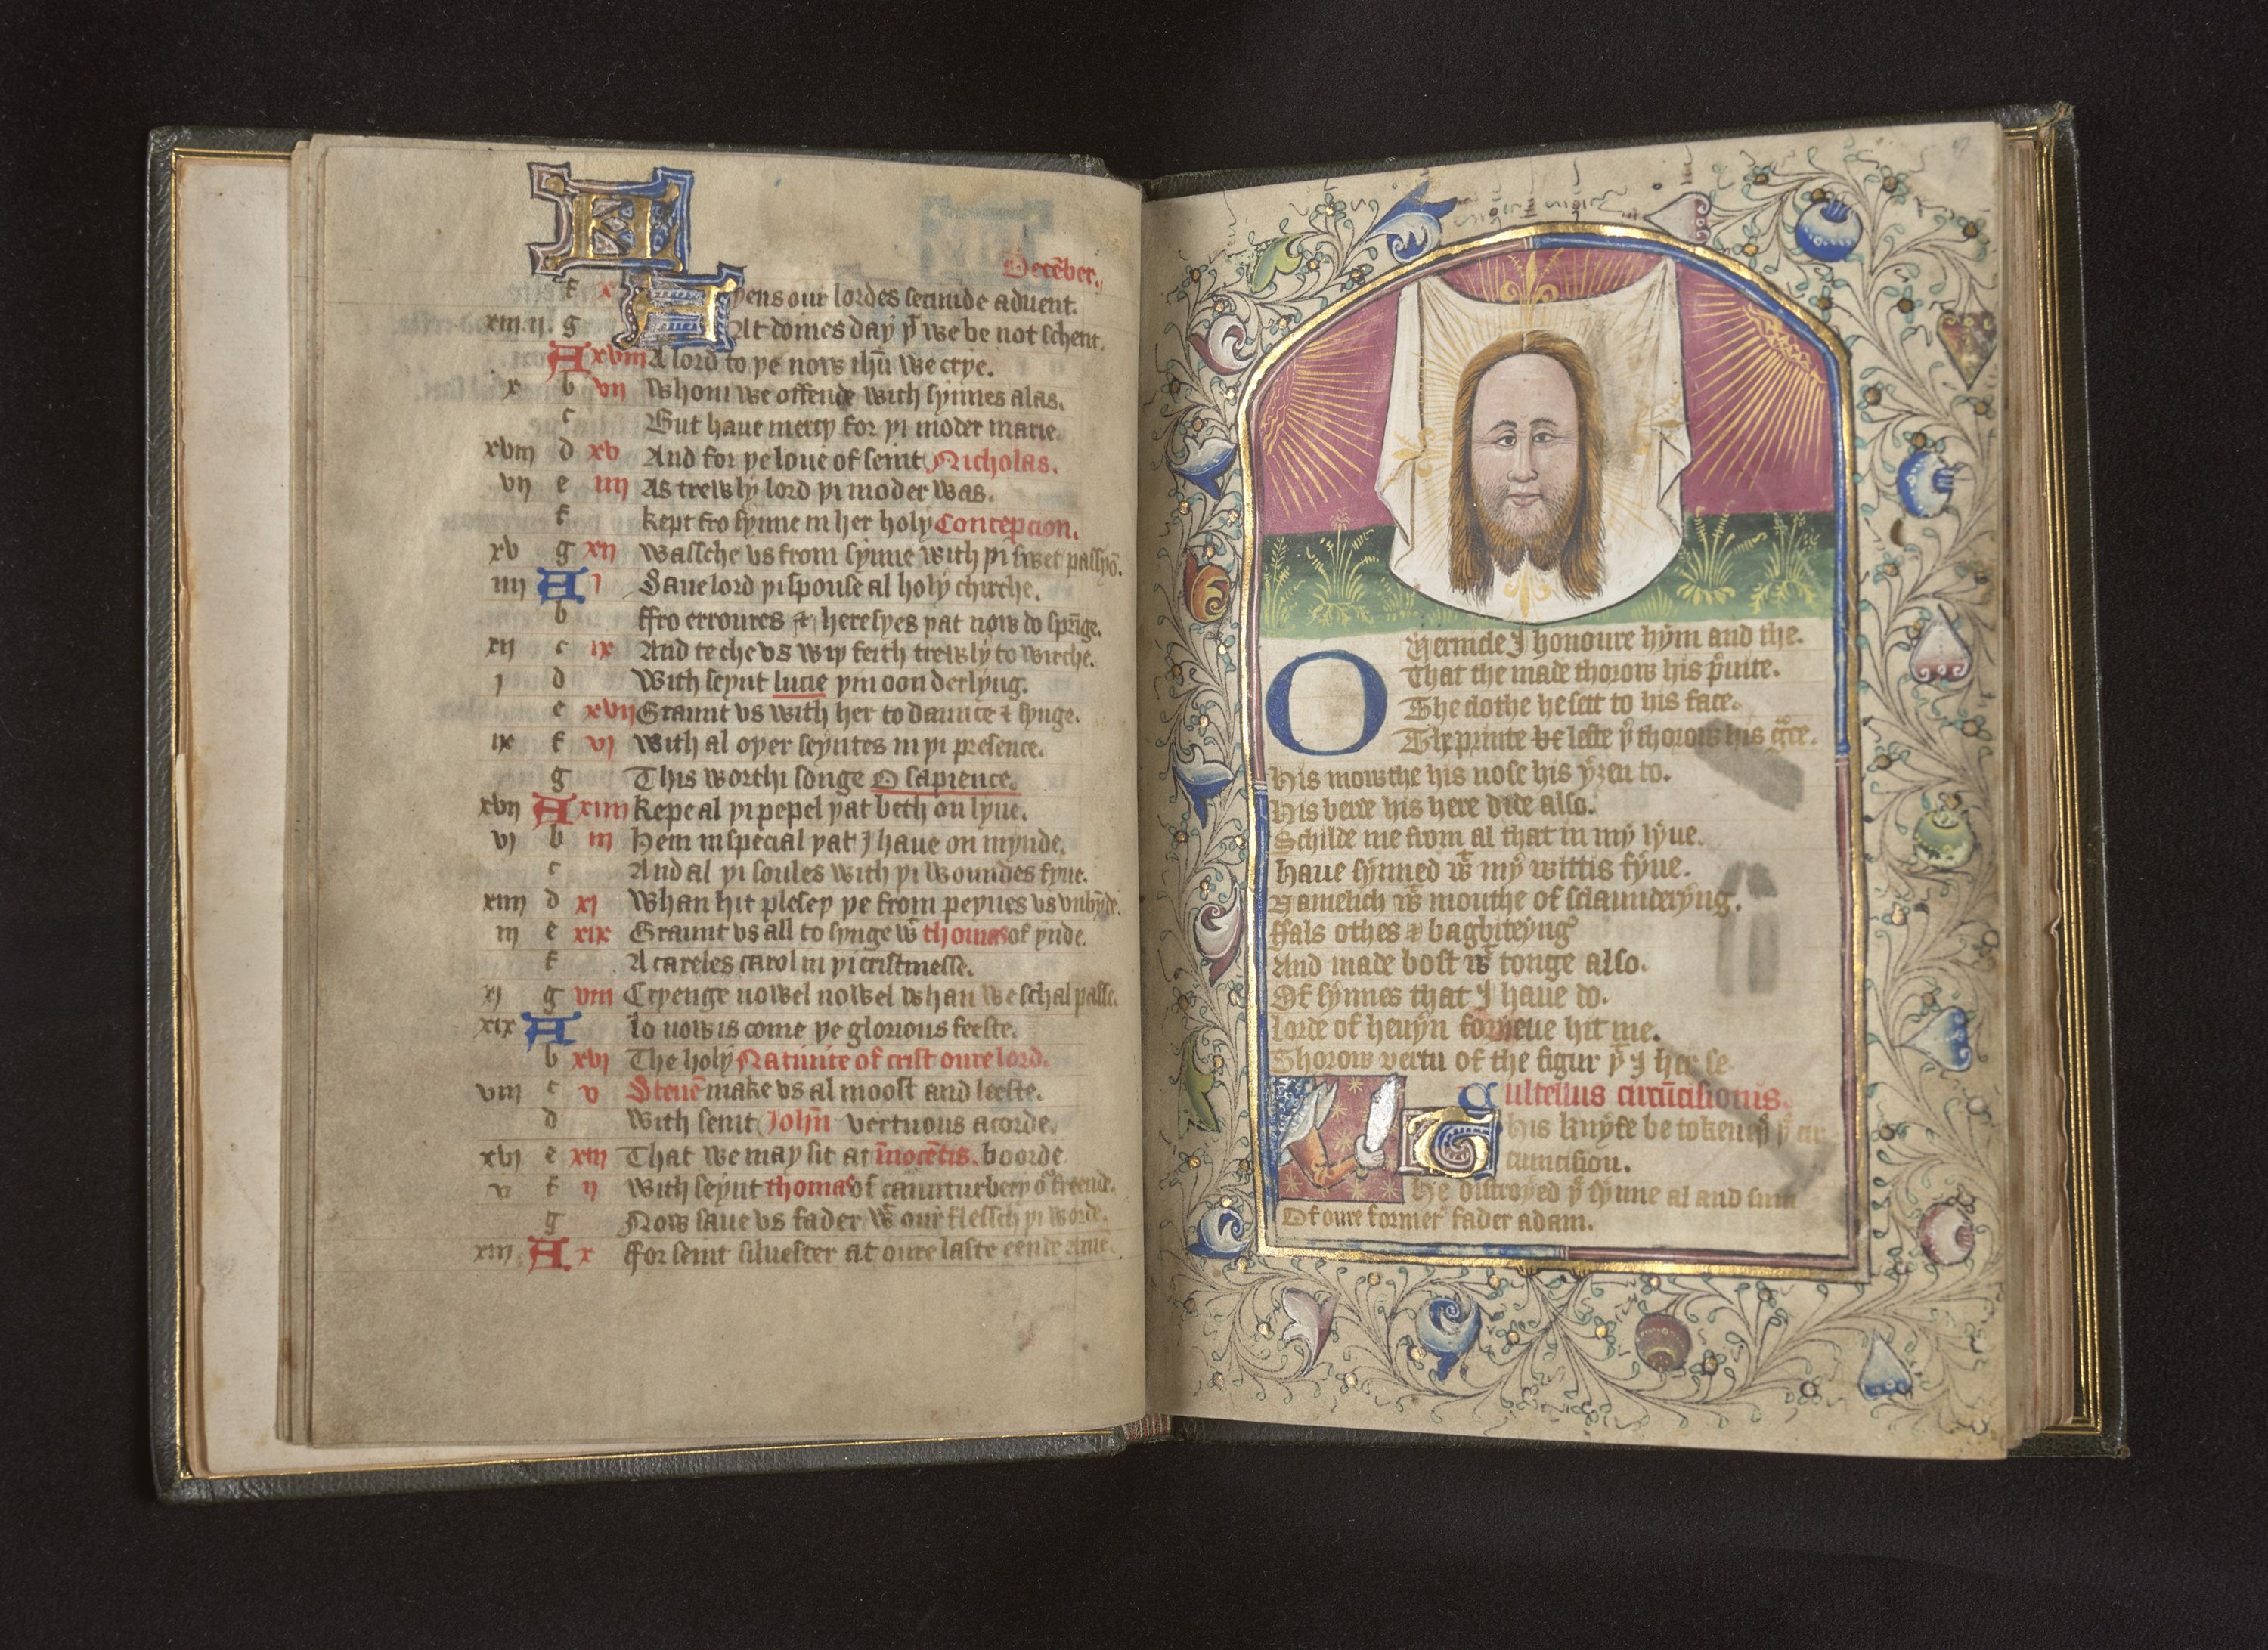 Decēber.
f x yens our lordes secunde aduent.
xiii ij. g At domes day þͭ we be not schent.
A xviii A lord to þe now ihū we crye.
x b vii Whom we offende with synnes alas.
c But haue mercy for þi moder marie.
xviii d xv And for þe loue of seint Nicholas.
vij e iiij As trewly lord þi moder was.
f kept fro synne in her holy Concepcion.
xv g xij Wassche vs from synne with þi swet passyō.
iiij A i Saue lord þi spouse al holy chirche.
b ffro erroures & heresyes þat now do sp̄nge.
xij c ix And teche vs wiþ feith trewly to wirche.
j d With seynt lucie þin oon derlyng.
e xvij Graunt vs with her to daunce & synge.
ix f vj With al oþer seyntes in þi presence.
g This worthi songe O sapience.
xvij A xiiij kepe al þi pepel þat beth on lyue.
vj b iij Hem in special þat J haue on mynde.
c And al þi soules with þi woundes fyue.
xiiij d xj Whan hit pleseþ þe from peynes vs vnbȳde.
iij e xix Graunt vs all to synge wͭ thomas of ynde.
f A careles carol in þi cristmesse.
xj g viii Cryenge nowel nowel whan we schal passe.
xix A lo now is come þe glorious feeste.
b xvj The holy Natiuite of crist oure lord.
viii c v Steuē make vs al moost and leeste.
d With seint John̄ vertuous acorde.
xvj e xiij That we may sit at īnocētis. boorde
v f ij With seynt thomas of caunturbery oʳ freende.
g Now saue vs fader wͭ our flessch þi worde.
xiij. A x ffor seint siluester at oure laste eende Amē.
O Vernicle J honoure hym and the.
That the made thorow his p̄uite.
The clothe he sett to his face.
The printe be lefte þͤ thorow his gͣce.
His mowthe his nose his yȝen to.
His berde his here dide also.
Schilde me from al that in my lyue.
Haue synned wͭ my wittis fyue.
Namelich wͭ mouthe of sclaunderyng.
ffals othes & bagbiteyng
And made bost wͭ tonge also.
Of synnes that J haue do.
Lorde of heuyn forȝeue hit me.
Thorow vertu of the figur þͭ J her se
Cultellus circūcisionis.
This knyfe be tokeneþ þͤ cir
cumcision.
He distroyed þͤ synne al and sum
Of oure former fader adam.